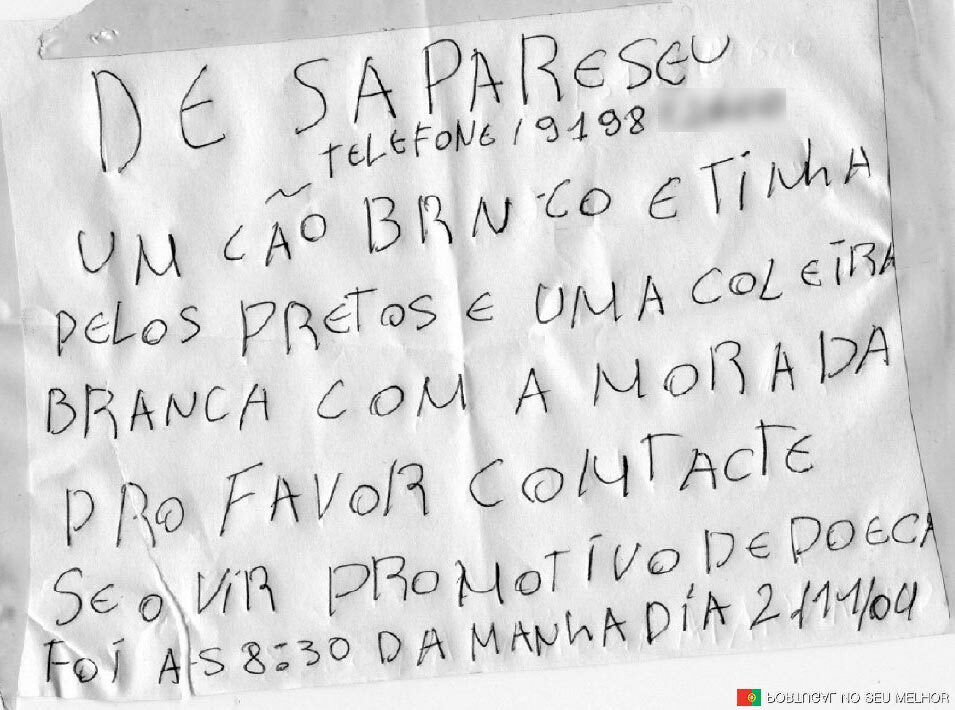 DE SAPARESEU
TELEFONE / 9198
UM CÃO BRNCO E TINHA
PELOS PRETOS E UMA COLEIRA
BRANCA COM A MORADA
PRO FAVOR COMTACTE
SE O VIR PROMOTIVO DE DOECA
FOI AS 8:30 DA MANHA DÍA 2/11/04
PORTUGAL NO SEU MELHOR